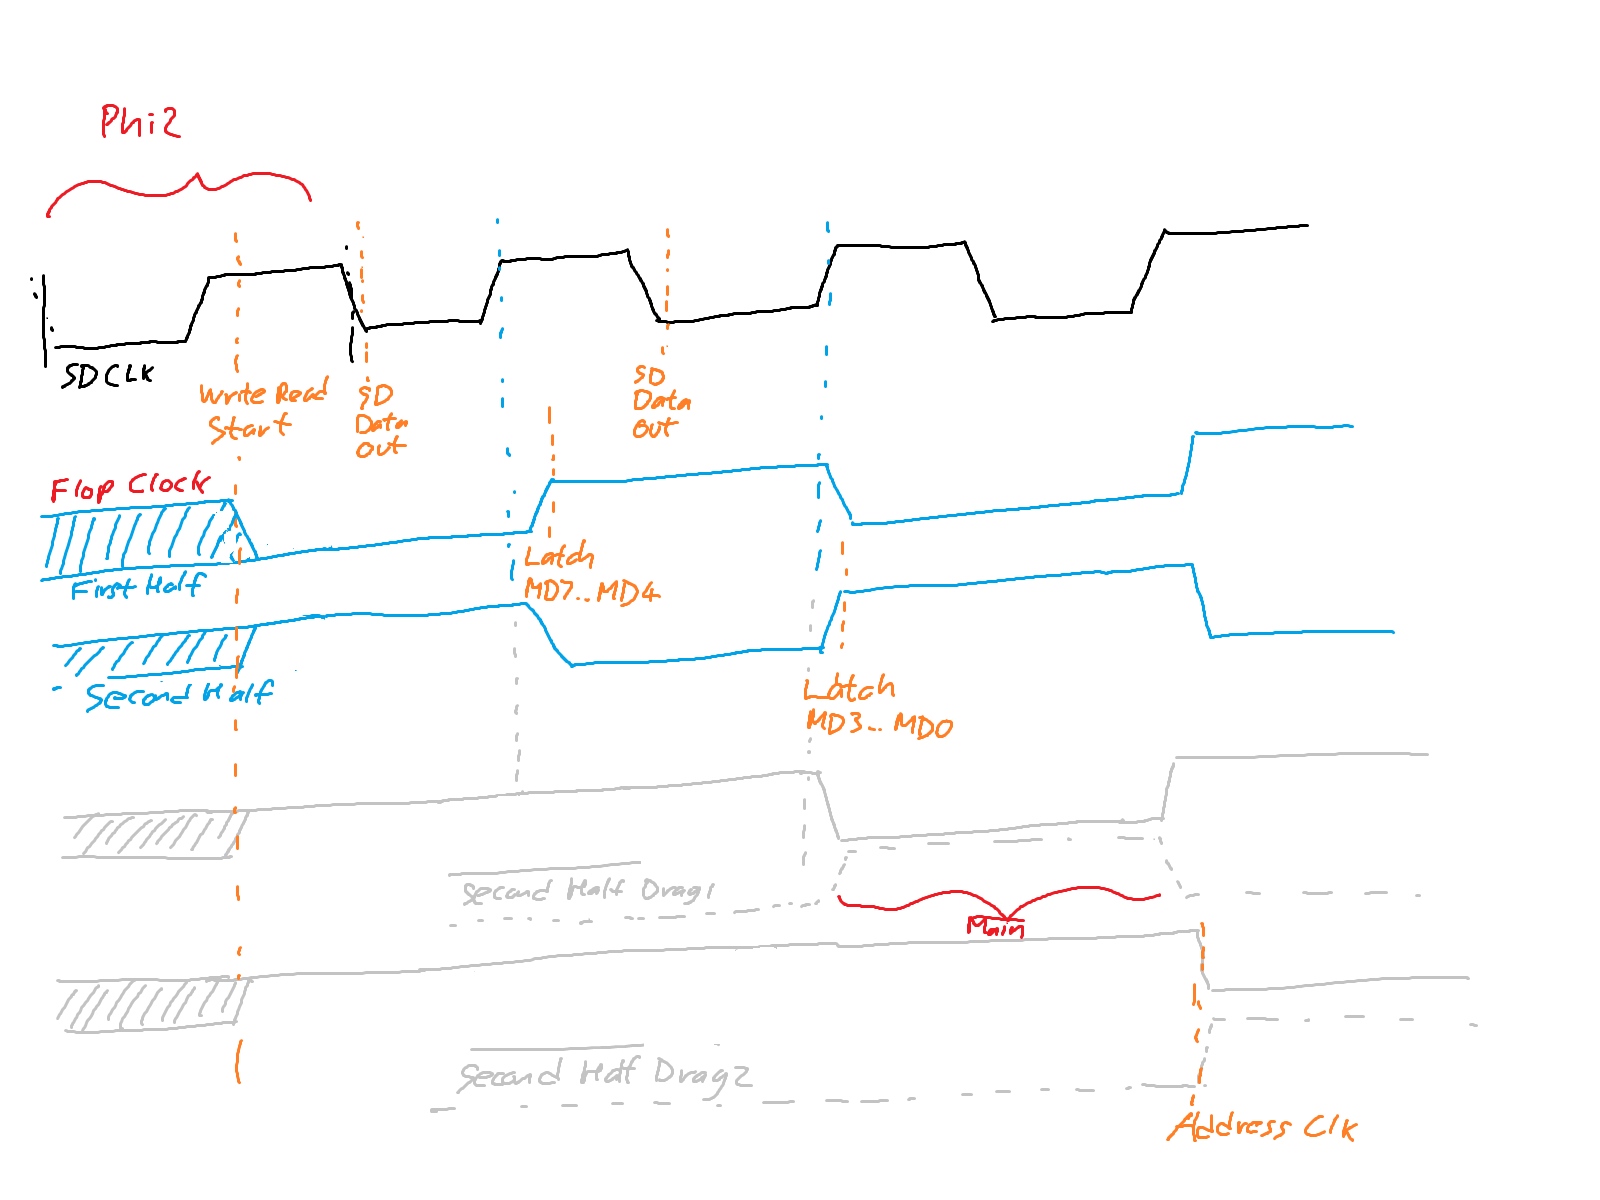 Phi2
SDCLK
Write Read
Start
SD
Data
out
SD
Data
out
Flop Clock
First Half
Latch
MD7..MD4
Second Half
Latch
MD3..MD0
Second Half Drag1
Main
Second Half Drag2
Address Clk